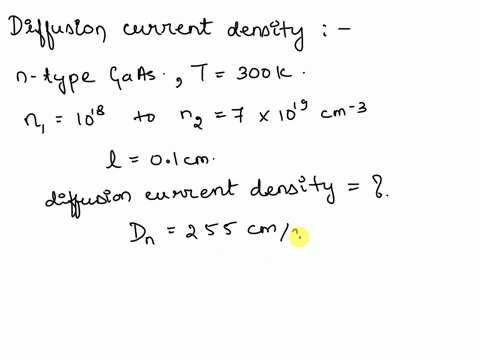 Diffusion current density : -
n-type GaAs , T = 300k .
n₁ = 10¹⁸ to n₂ = 7 × 10¹⁹ cm⁻³
l = 0.1 cm.
diffusion current density = ?.
Dₙ = 255 cm/